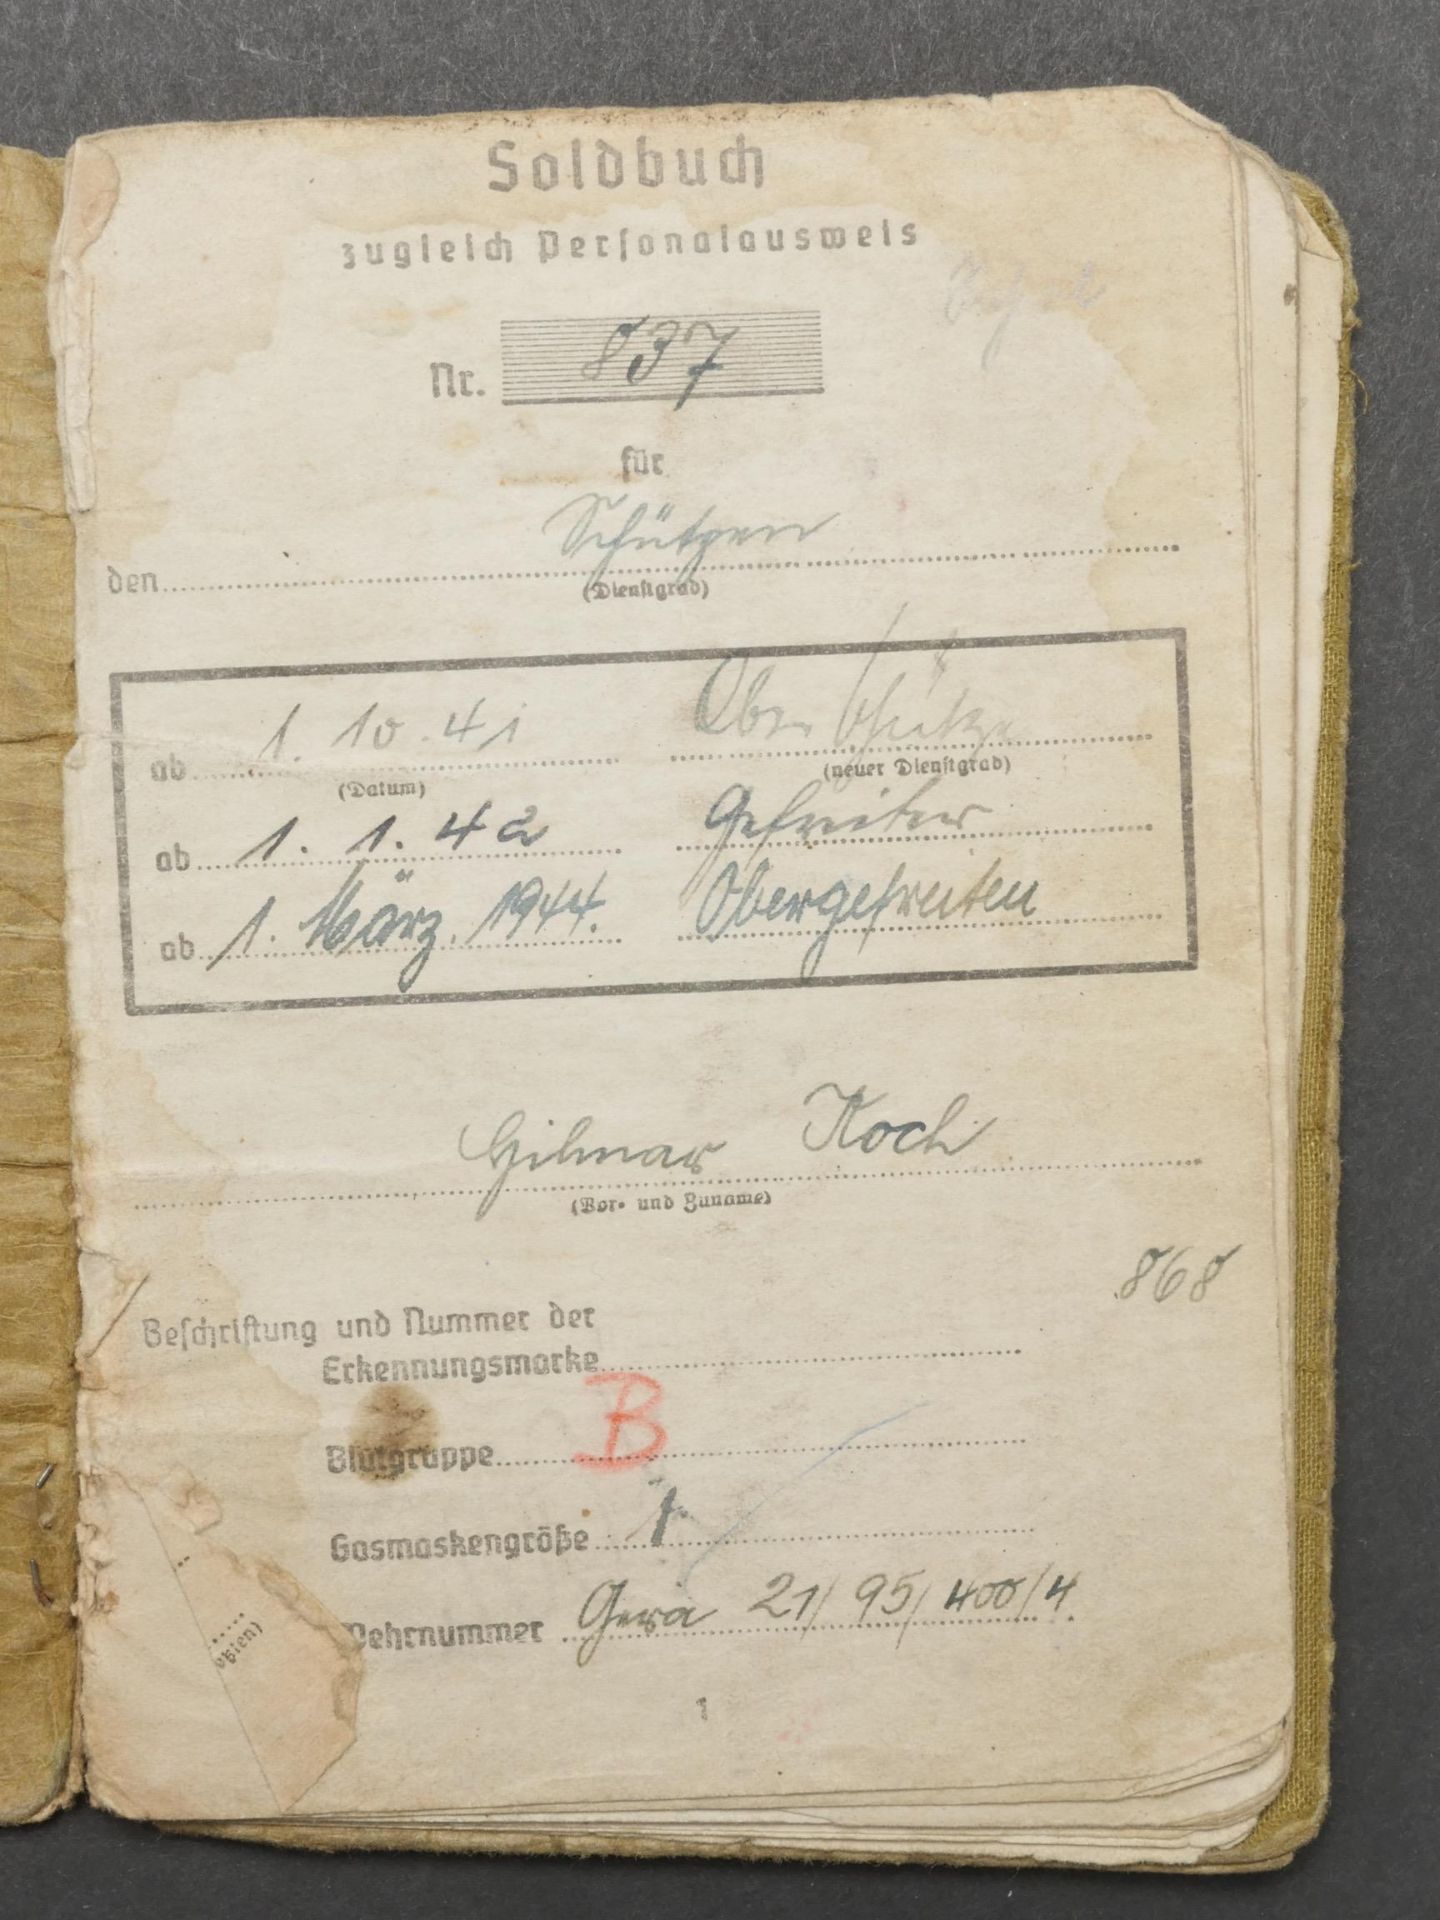 Soldbuch
zugleich Personalausweis
Nr. 837
für
den Schützen
(Dienstgrad)
ab 1. 10. 41 Oberschütze
(Datum) (neuer Dienstgrad)
ab 1. 1. 42 Gefreiter
ab 1. März. 1944. Obergefreiten
Hilmar Koch
(Vor- und Zuname)
868
Beschriftung und Nummer der
Erkennungsmarke
Blutgruppe B
Gasmaskengröße 1
Wehrnummer Gera 21/95/400/4.
1